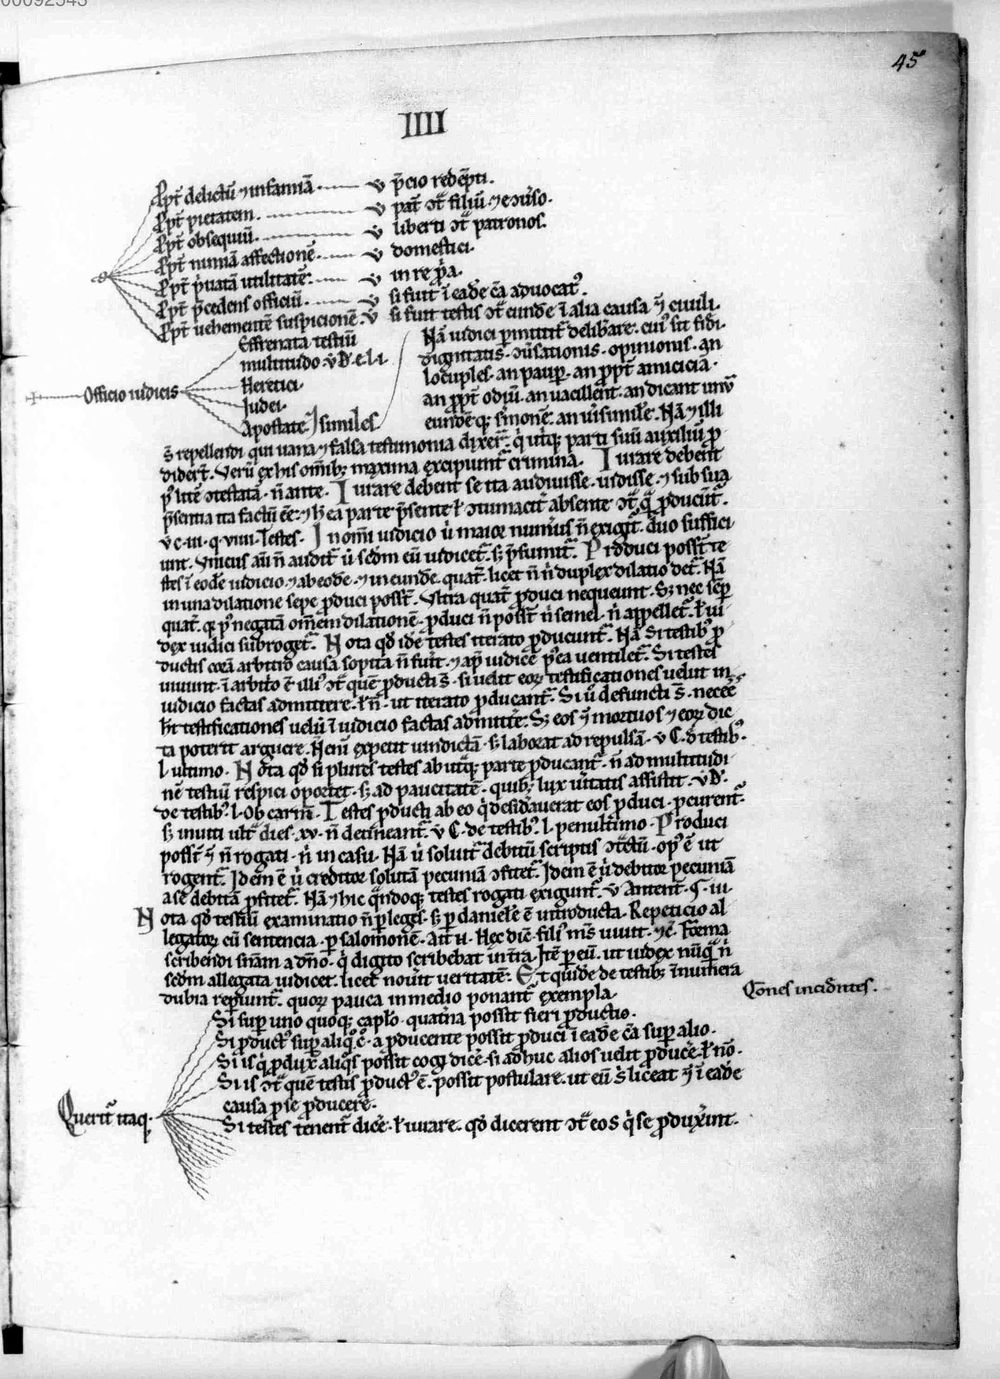 00092543
45
IIII
Ppt̄ delictū ⁊ infamiā. v p̄cio redēpti.
Ppt̄ pietatem. v pat̄ ↄt̄ filiū ⁊ e ↄũso.
Ppt̄ obsequiū. v liberti ↄt̄ patronos.
Ppt̄ nimiā affectionē. v domestici.
Ppt̄ p̄uatā utilitatē. v in re p̄a.
Ppt̄ p̄cedens officiū. v si fuit ī eadē cā aduocat᾽.
Ppt̄ uehementē suspicionē. v si fuit testis ↄt̄ eundē ī alia causa ⁊̄ ciuili.
Effrenata testiū
multitudo. v D. e. l. i.
Officio iudicis
Heretici.
Iudei.
Apostate. ⁊ similes
Nā iudici p̄mittit᷑ delibare. cui᾽ sit fidi.
dignitatis. ↄũsationis. opinionis. an
locuples. an paup̄. an p̄pt̄ amicicia.
an p̄pt̄ odiū. an uacillent. an dicant unū
eundēq; s̄monē. an ũisimilē. Nā ⁊ illi
s̄ repellendi qui uana ⁊ falsa testimonia dixer̄. q̇ ut̄q; parti suū auxiliū p̄
didert̄. Verū ex his om̄ib; maxima excipiunt᷑ crimina. Iurare debent
p᾽ litē ↄtestatā. n̄ ante. Iurare debent se ita audiuisse. uidisse. ⁊ sub sua
p̄sentia ita factū ēē. ⁊ h̄ ea parte p̄sente ł ↄtumacit᷑ absente ↄt̄ q̄ p̄ducūt᷑.
v c. iii. q. viiii. Testes. In om̄i iudicio ũ maior num̄us n̄ exigit᷑. duo suffici
unt. Vnicus aū n̄ audit᷑ ũ scdm eū iudicet᷑. s; p̄sumit᷑. Produci poss̄t te
stes ī eodē iudicio. ⁊ ab eodē. ⁊ in eundē. quat̄. licet n̄ n̄ duplex dilatio det᷑. Nā
in una dilatione sepe p̄duci poss̄t. Vltra quat̄ p̄duci nequeunt. S; nec semp̄
quat̄. q; p᾽ negatā om̄em dilationē. p̄duci n̄ poss̄t n̄ semel. n̄ appellet᷑. ł iu
dex iudici subroget᷑. Nota qd̄ idē testes iterato p̄ducunt᷑. Nā si testib᾽ p̄
ductis corā arbitro causa sopita n̄ fuit. ⁊ ap̄ iudicē p᾽ea ventilet᷑. Si testes
uiuunt. ī arbit̄o ē illi᾽ ↄt̄ quē p̄ducti s̄. si uelit eoꝝ testificationes uelut in
iudicio factas admittere. ł n̄. ut iterato p̄ducant᷑. Si ũ defuncti s̄. neceē
h̄t testificationes uelū ī iudicio factas admitt̄e. S; eos ⁊̄ mortuos ⁊ eoꝝ dic
ta poterit arguere. N̄ enī expetit uindictā. s; laborat ad repulsā. v C. d̄ testib᾽.
l ultimo. Nota qd̄ si plures testes ab ut̄q; parte p̄ducant᷑. n̄ ad multitudi
nē testiū respici oportet. s; ad paucitatē. quib; lux ũitatis assistit. v D.
de testib᾽. l. Ob carm̄. Testes p̄ducti ab eo q̇ desid̄auerat eos p̄duci. p̄curent᷑.
s; inuiti ult̄ dies. xv. n̄ detineant᷑. v C. de testib᾽. l. penultimo. Produci
poss̄t ⁊̄ n̄ rogati. n̄ in casu. Nā ũ soluit᷑ debitū scriptis ↄt̄ctū. op᾽ ē ut
rogent᷑. Idem ē ũ creditor solutā pecuniā ↄfitet᷑. Idem ē ũ debitor pecuniā
a se debitā p̄fitet᷑. Nā ⁊ hic q̄ndoq; testes rogati exigunt᷑. v Autent. §. iii.
Nota qd̄ testiū examinatio n̄ p̄ leges. s; p̄ danielē ē introducta. Repeticio al
legatoꝝ cū sentencia. p̄ salomonē. Hec diē. fili᾽ m̄s uiuit. ⁊c̄. Forma
scribendi sn̄iam a dn̄o. q̇ digito scribebat in t̄ra. Itē p̄ eū. ut iudex nūq̄ n̄
scdm allegata iudicet. licet nouit veritatē. Et quidē de testib; innuīera
dubia rep̄iunt᷑. quoꝝ pauca in medio ponant᷑ exempla.
Qōnes incidntes.
Si sup̄ uno quoq; cap̄lo. quat̄na possit fieri p̄ductio.
Si p̄duct᾽ sup̄ aliq̇. a p̄ducente possit p̄duci ī eadē cā sup̄ alio.
Si is q̇ p̄dux̄ aliq̇s possit cogi dic̄e. si adhuc alios uelit p̄duc̄e. ł no.
Si is ↄt̄ quē testis p̄duct᾽ ē. possit postulare. ut eū s̄ liceat ⁊̄ ī eadē
causa p̄ se p̄ducere.
Querit᷑ itaq;
Si testes tenent᷑ dic̄e. ł iurare. qd̄ dicerent ↄt̄ eos q̇ se p̄duxint.